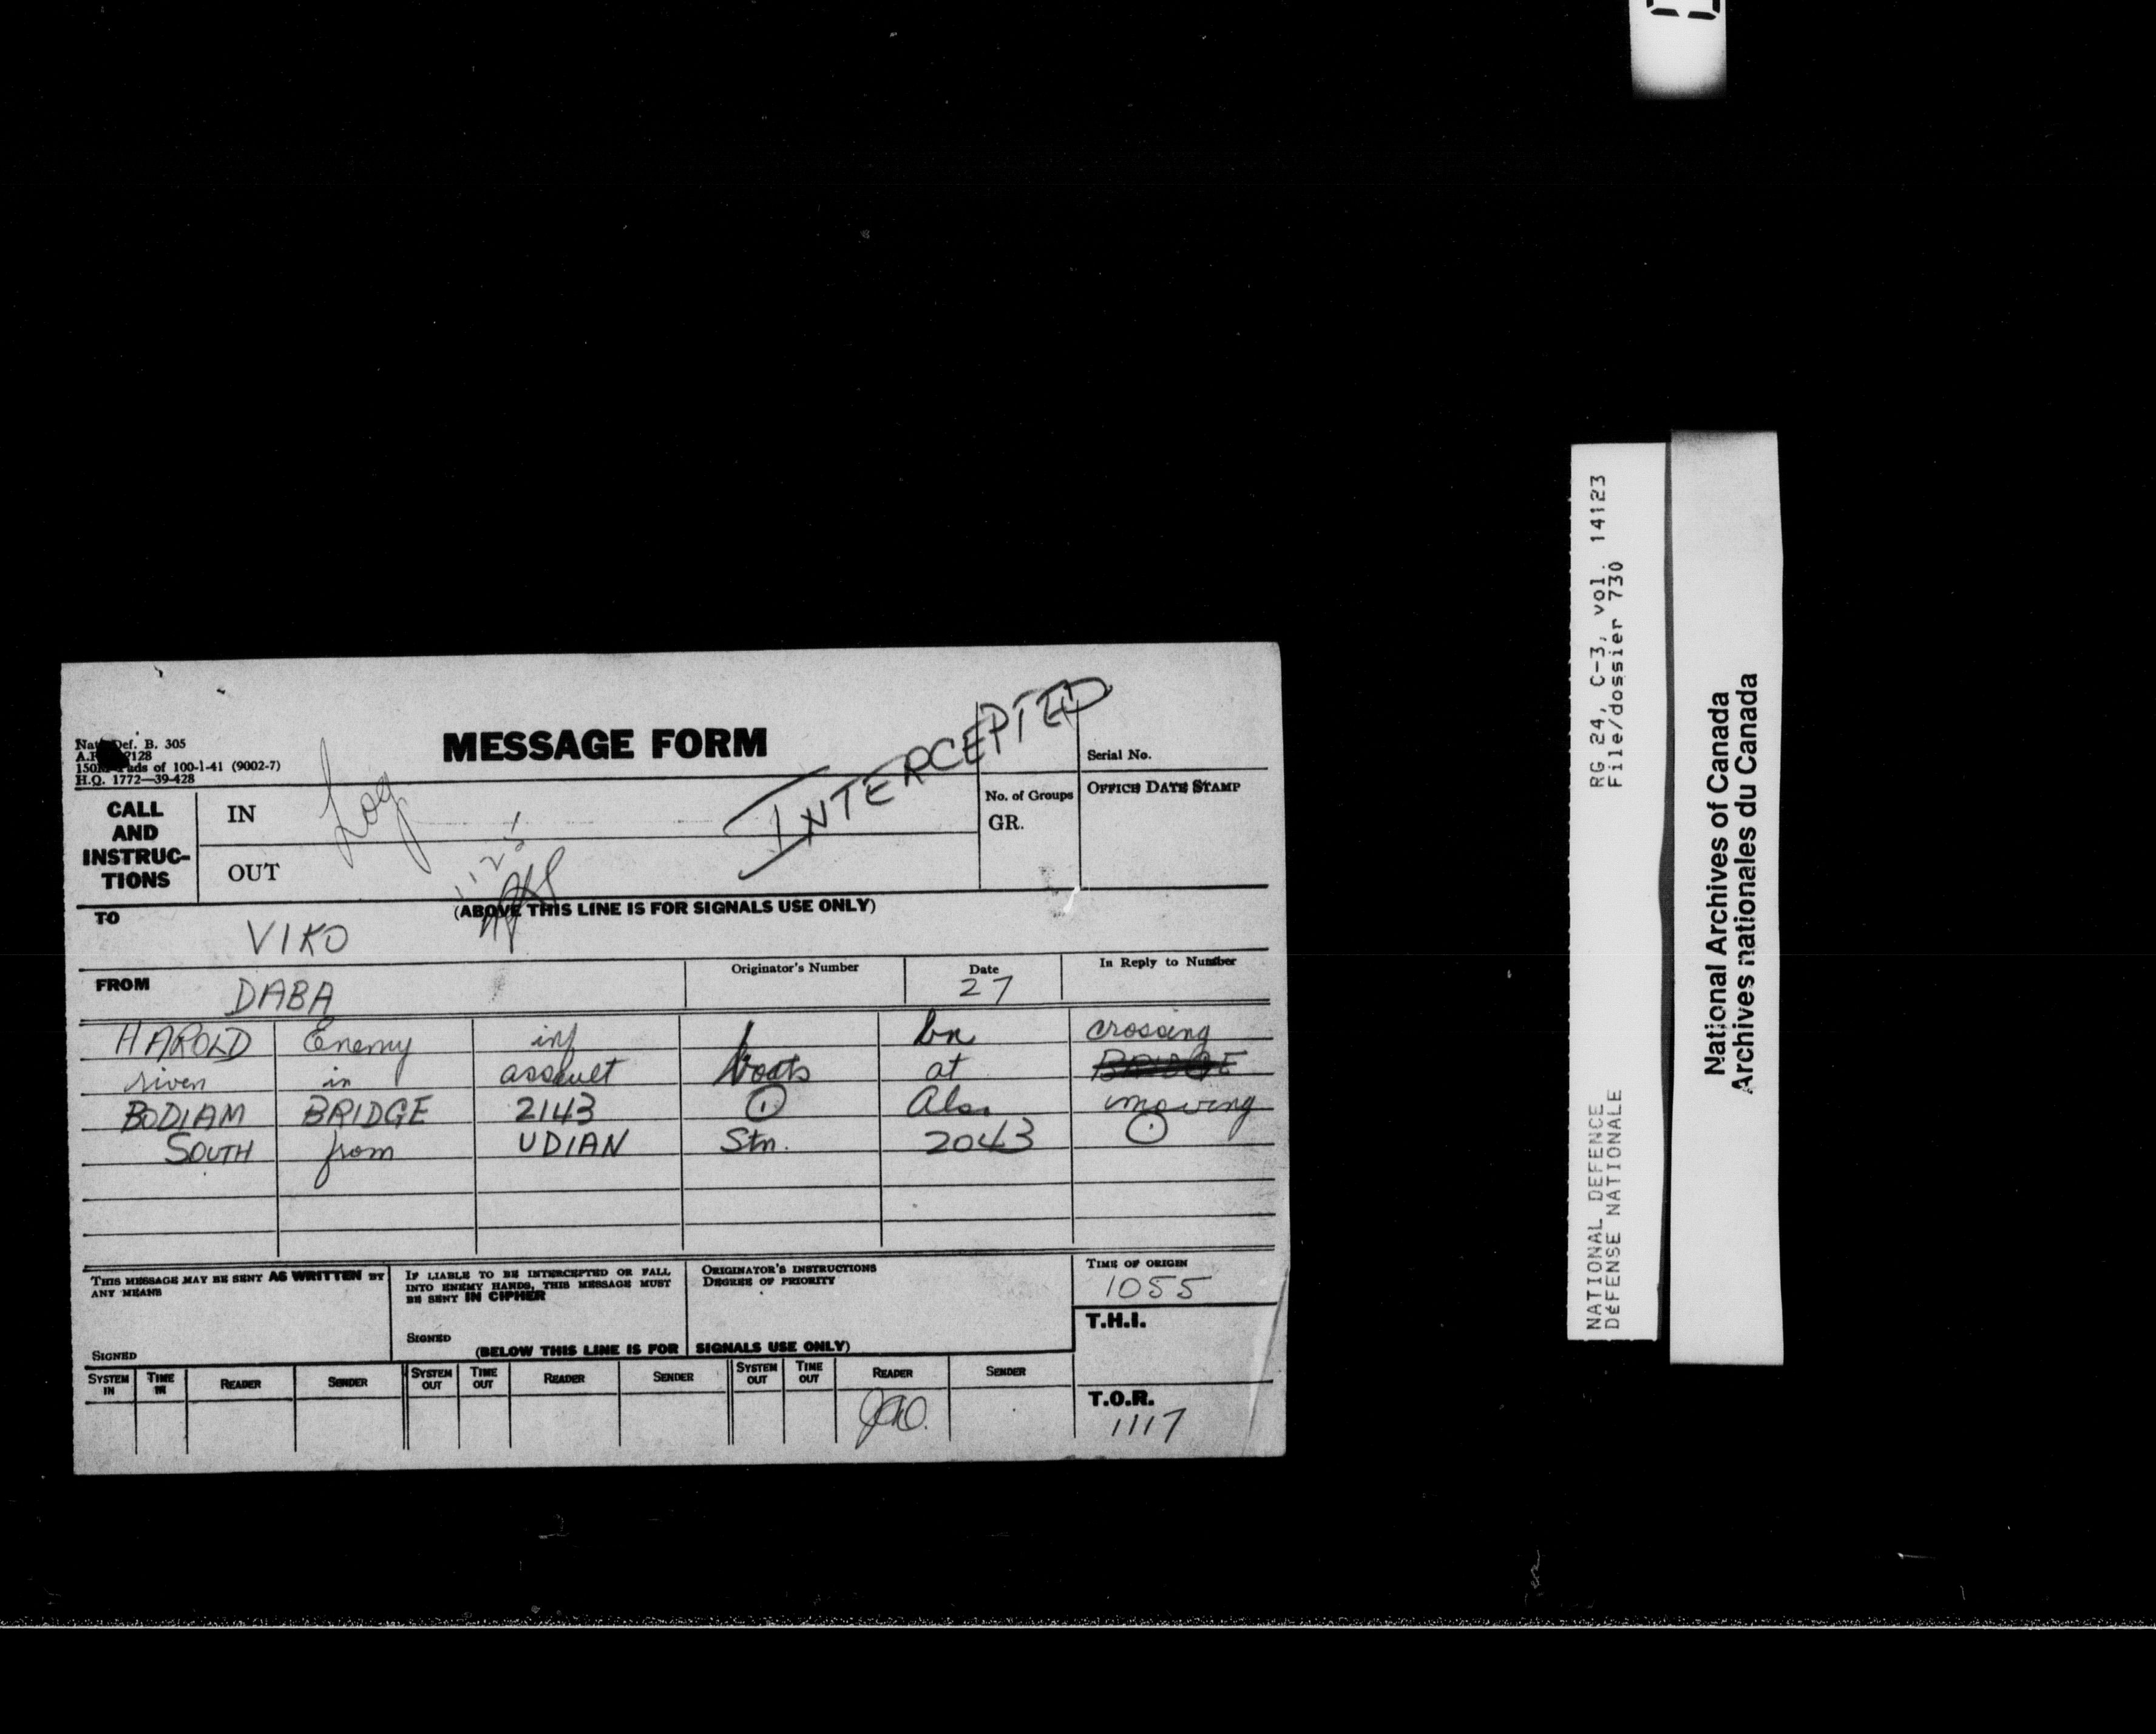 Nat. Def. B. 305
128
150M Pads of 100-1-41 (9002-7)
H.Q. 1772—39-428
MESSAGE FORM
INTERCEPTED
Serial No.
CALL AND INSTRUC-TIONS
IN
Log
OUT
No. of Groups
GR.
OFFICE DATE STAMP
(ABOVE THIS LINE IS FOR SIGNALS USE ONLY)
TO VIKO
FROM DABA
Originator's Number
Date 27
In Reply to Number
HAROLD Enemy inf bn crossing
river in assault boats at BRIDGE
BODIAM BRIDGE 2143 Also moving
SOUTH from UDIAN Stn. 2043
THIS MESSAGE MAY BE SENT AS WRITTEN BY
ANY MEANS
SIGNED
IF LIABLE TO BE INTERCEPTED OR FALL
INTO ENEMY HANDS, THIS MESSAGE MUST
BE SENT IN CIPHER
SIGNED
ORIGINATOR'S INSTRUCTIONS
DEGREE OF PRIORITY
TIME OF ORIGIN
1055
T.H.I.
(BELOW THIS LINE IS FOR SIGNALS USE ONLY)
SYSTEM IN TIME IN READER SENDER SYSTEM OUT TIME OUT READER SENDER SYSTEM OUT TIME OUT READER SENDER
T.O.R.
1117
RG 24, C-3, vol. 14123
File/dossier 730
NATIONAL DEFENCE
DÉFENSE NATIONALE
National Archives of Canada
Archives nationales du Canada